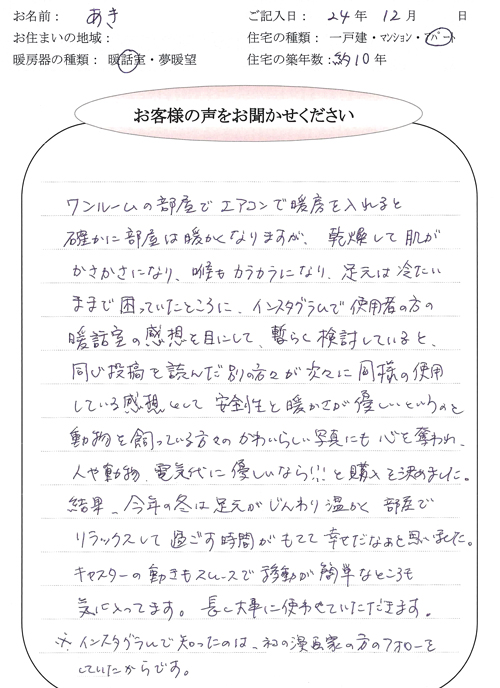 お名前： あき
ご記入日： 24年 12月 日
お住まいの地域：
住宅の種類： 一戸建・マンション・アパート
暖房器の種類： 暖話室・夢暖望
住宅の築年数： 約10年
お客様の声をお聞かせください
ワンルームの部屋で エアコンで暖房を入れると
確かに部屋は暖かくなりますが、乾燥して肌が
かさかさになり、喉もカラカラになり、足元は冷たい
ままで困っていたところに、インスタグラムで使用者の方の
暖話室の感想を目にして、暫らく検討していると、
同じ投稿を読んだ別の方々が次々に同様の使用
している感想として 安全性と暖かさが優しいというのと
動物を飼っている方々のかわいらしい写真にも心を奪われ、
人や動物、電気代に優しいなら!!!と購入を決めました。
結果、今年の冬は足元がじんわり温かく 部屋で
リラックスして過ごす時間がもてて幸せだなぁと思いました。
キャスターの動きもスムースで移動が簡単なところも
気に入ってます。長く大事に使わせていただきます。
※ インスタグラムで知ったのは、 の漫画家の方のフォローを
していたからです。